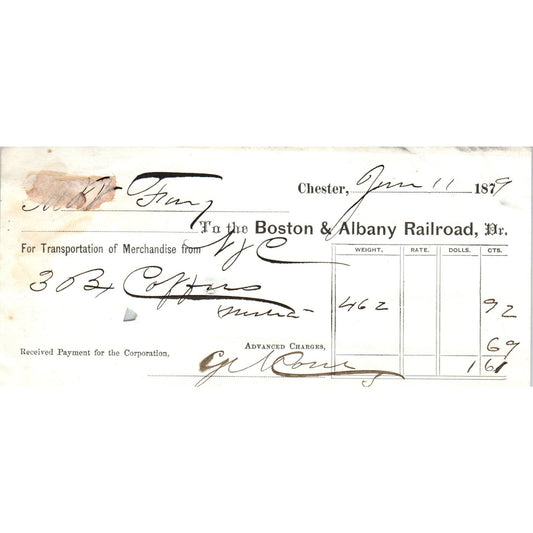 Chester, Jun 11 1879
To the Boston & Albany Railroad, Dr.
For Transportation of Merchandise from NYC
WEIGHT. RATE. DOLLS. CTS.
3 Bx 462 92
ADVANCED CHARGES, 69
Received Payment for the Corporation, 1 61